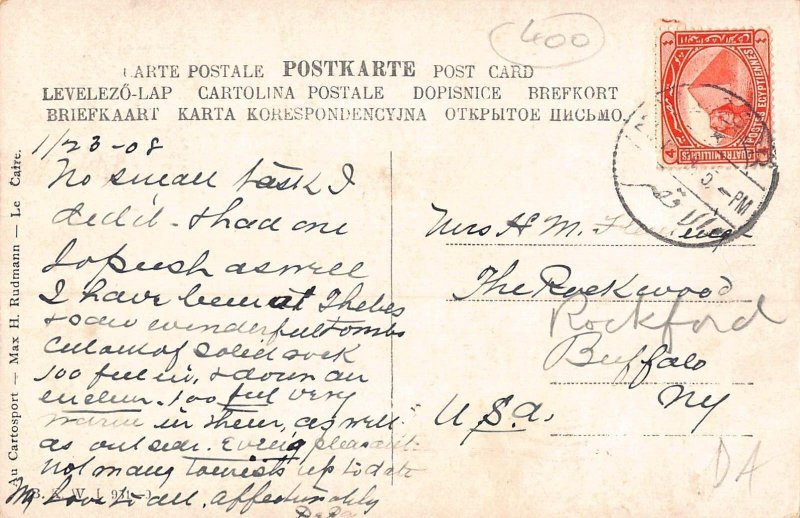 400
CARTE POSTALE POSTKARTE POST CARD
LEVELEZŐ-LAP CARTOLINA POSTALE DOPISNICE BREFKORT
BRIEFKAART KARTA KORESPONDENCYJNA ОТКРЫТОЕ ПИСЬМО.
Au Cartosport — Max H. Rudmann — Le Caire.
1/23-08
No small task I
did it - & had one
to push as well
I have been at Thebes
& saw wonderful tombs
cut out of solid rock
100 feet in, & down an
incline. 100 feet very
warm in them, as well
as outside. Every pleasant.
not many tourists up to date
My love to all. affectionately
Papa
POSTES EGYPTIENNES
QUATRE MILLIEMES
4
5 - PM
Mrs H. M.
The Rockwood
Rockford
Buffalo
NY
U.S.A.
DA